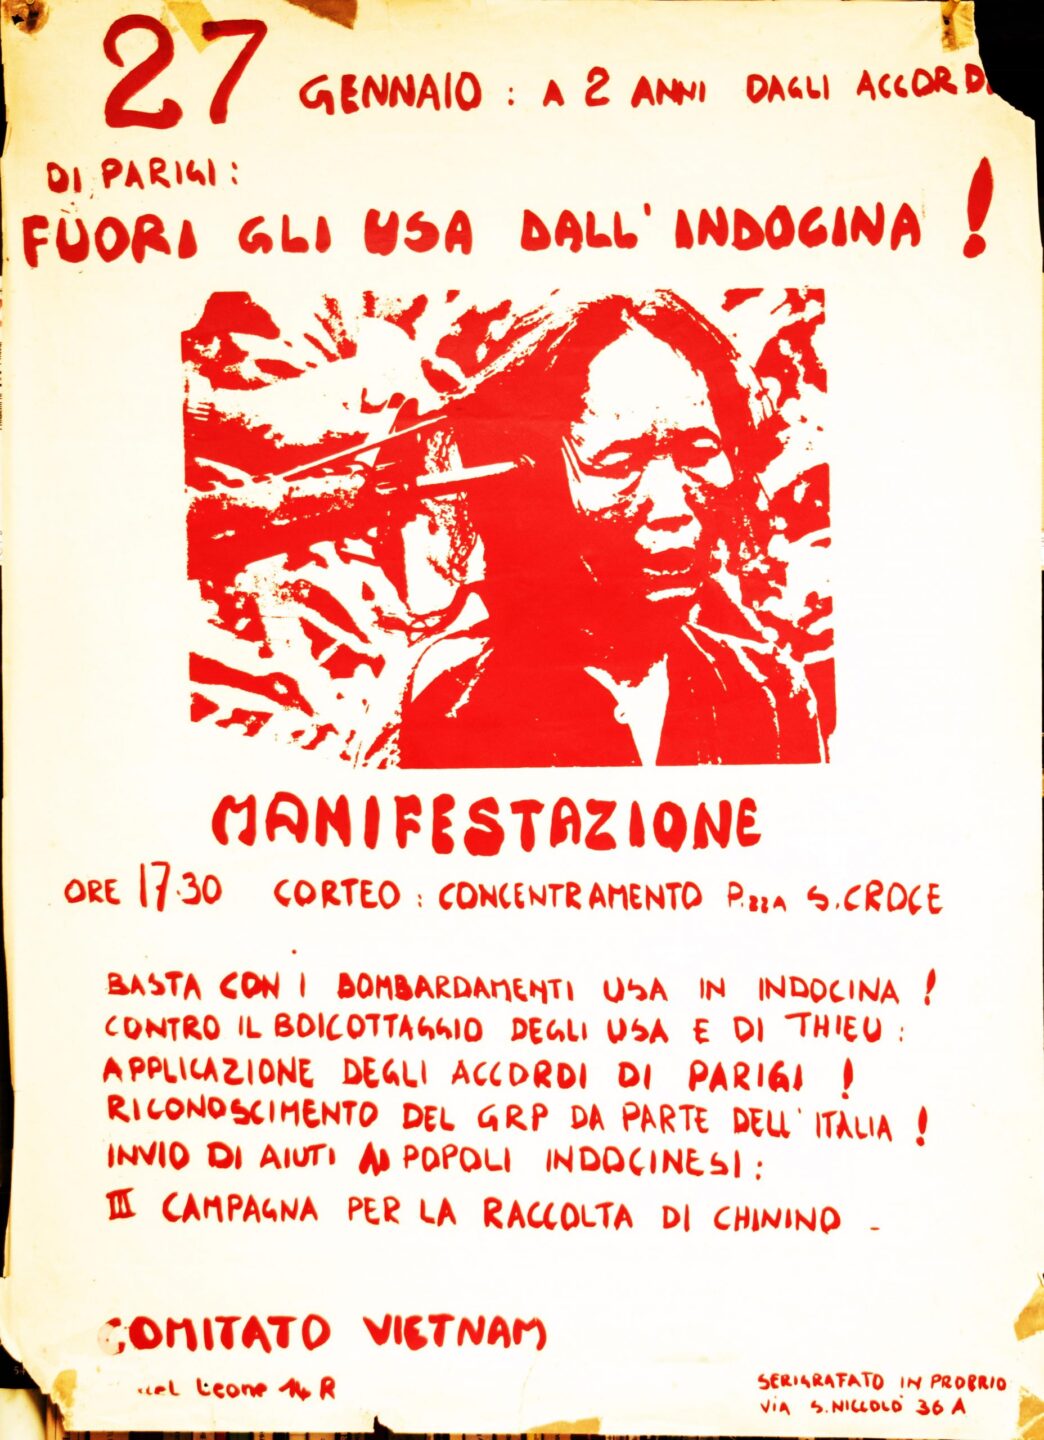 27 GENNAIO : A 2 ANNI DAGLI ACCORDI
DI PARIGI :
FUORI GLI USA DALL'INDOCINA !
MANIFESTAZIONE
ORE 17.30 CORTEO : CONCENTRAMENTO P.zza S. CROCE
BASTA CON I BOMBARDAMENTI USA IN INDOCINA !
CONTRO IL BOICOTTAGGIO DEGLI USA E DI THIEU :
APPLICAZIONE DEGLI ACCORDI DI PARIGI !
RICONOSCIMENTO DEL GRP DA PARTE DELL'ITALIA !
INVIO DI AIUTI AI POPOLI INDOCINESI :
III CAMPAGNA PER LA RACCOLTA DI CHININO -
COMITATO VIETNAM
del Leone 14 R
SERIGRAFATO IN PROPRIO
VIA S. NICCOLO' 36 A